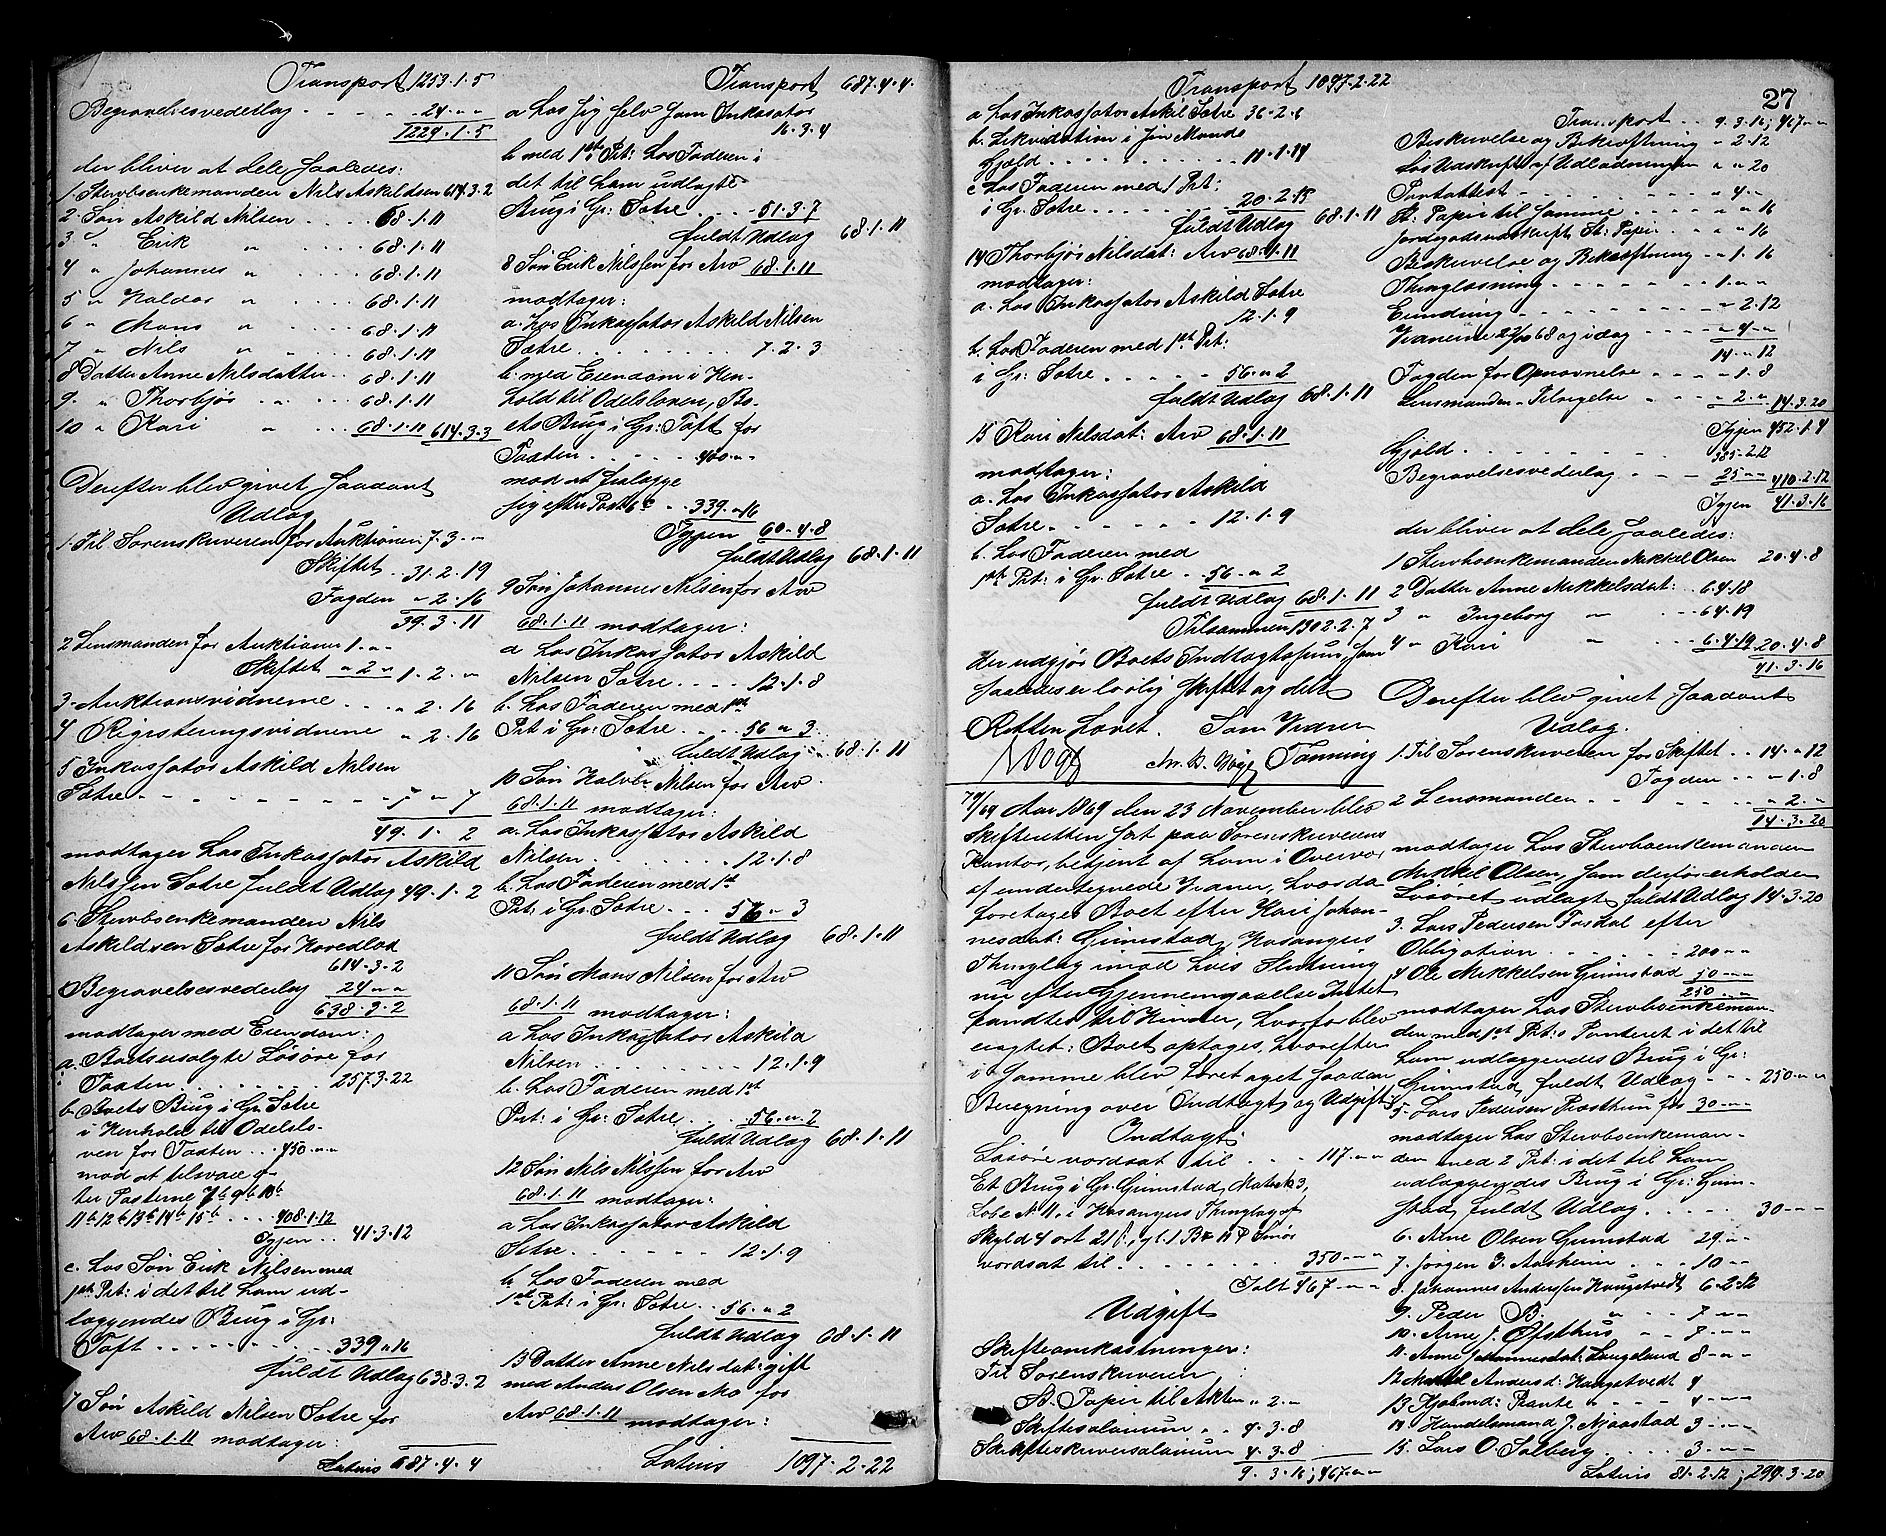 Transport 1253.1.5
Begravelsesvederlag - - - - 24 - "
1229.1.5
der bliver at dele saaledes:
1. Stervboenkemanden Nils Askildsen 614.3.2
2. Søn Askild Nilsen 68.1.11
3 " Erik " 68.1.11
4 " Johannes " 68.1.11
5 " Haldor " 68.1.11
6 " Mons " 68.1.11
7 " Nils " 68.1.11
8 Datter Anne Nilsdatter 68.1.11
9. " Thorbjør " 68.1.11
10 " Kari " 68.1.11 614.3.3
Derefter blev givet saadant
Udlæg
1. Til Sorenskriveren for Auktionen 7.3 - "
Skiftet 31.2.19
Fogden " 2.16
39.3.11
2 Lensmanden for Auktionen 1 - "
Skiftet " 2 " 1.2 - "
3. Auktionsvidnerne . . . " 2.16
4 Registeringsvidnerne " 2.16
5 Inkassator Askild Nilsen
Sætre - - - - - - - 7 " 7
49.1.2
modtager hos Inkassator Askild
Nilssen Sætre fuldt Udlæg 49.1.2
6. Stervboenkemanden Nils
Askildsen Sætre for Hovedlod
614.3.2
Begravelsesvederlag 24 " "
638.3.2
modtager med Eiendom:
a. Boets usolgte Løsøre for
Taxten . . . . . . . 257.3.22
b. Boets Brug i Gr: Sætre
i Henhold til Odelslo-
ven for Taxten . . 450 - "
mod at tilsvare ef-
ter Posterne 7b 9b 10b
11b 12b 13b 14b 15b . . . 408.1.12
Igjen . . 41.3.12
c. hos Søn Erik Nilsen med
1ste Prt: i det til ham ud-
læggendes Brug i Gr:
Toft . . . . . . . 339 " 16
fuldt Udlæg 638.3.2
7 Søn Askild Nilsen Sætre for
Arv 68.1.11 modtager:
Lateris 687.4.4
Transport 687.4.4.
a hos sig selv som Inkassator
16.3.4
b med 1ste Prt: hos Faderen i
det til ham udlagte
Brug i Gr: Sætre . . . 51.3.7
fuldt Udlæg 68.1.11
8 Søn Erik Nilssen for Arv 68.1.11
modtager:
a. hos Inkassator Askild Nilsen
Sætre . . . . . . . 7.2.3
b. med Eiendom i Hen-
hold til Odelsloven, Bo-
ets Brug i Gr: Toft for
Taxten . . . . . 400 - "
mod at fralægge
sig efter Post 6c . . 339 " 16
Igjen 60.4.8
fuldt Udlæg 68.1.11
9 Søn Johannes Nilsen for Arv
68.1.11 modtager:
a hos Inkassator Askild
Nilsen Sætre . . . . 12.1.8
b. hos Faderen med 1ste
Prt i Gr: Sætre . . . 56 " 3
fuldt Udlæg " 68.1.11
10 Søn Haldor Nilsen for Arv
68.1.11 modtager:
a. hos Inkassator Askild
Nilsen . . . . . . . 12.1.8
b. hos Faderen med 1ste
Prt: i Gr: Sætre . . . 56 " 3
fuldt Udlæg 68.1.11
11 Søn Mons Nilsen for Arv
68.1.11 modtager:
a hos Inkassator Askild
Nilsen . . . . . . . 12.1.9
b. hos Faderen med 1ste
Prt: i Gr: Sætre . . . 56 " 2
fuldt Udlæg 68.1.11
12 Søn Nils Nilssen for Arv
68.1.11 modtager:
a hos Inkassator Askild
Sætre . . . . . . . 12.1.9
b. hos Faderen med
1ste Prt: i Gr: Sætre . . 56 " 2
fuldt Udlæg 68.1.11
13 Datter Anne Nilsdat: gift
med Anders Olsen Mo for
Arv 68.1.11 modtager:
Lateris 1097.2.22
Transport 1097.2.22
a hos Inkassator Askil Sætre 36.2.6
b. Likvidation i sin Mands
Gjæld . . . . . . . 11.1.14
c hos Faderen med 1 Prt:
i Gr: Sætre . . . . . . 20.2.15
fuldt Udlæg 68.1.11
14 Thorbjør Nilsdat: Arv 68.1.11
modtager:
a. hos Inkassator Askild Sætre
12.1.9
b. hos Faderen med 1ste Prt:
i Gr: Sætre . . . . . 56 " 2
fuldt Udlæg 68.1.11
15 Kari Nilsdat: Arv 68.1.11
modtager:
a. hos Inkassator Askild
Sætre . . . . . . . 12.1.9
b. hos Faderen med
1ste Prt: i Gr: Sætre . . 56 " 2
fuldt Udlæg 68.1.11
Tilsammen 1302.2.7
der udgjør Boets Indtægtssum, som
saaledes er lovlig skiftet og delt
Retten hævet. Som Vidner
Woge M. B. Woge Tanning
79/69 Aar 1869 den 23 November blev
Skifteretten sat paa Sorenskriverens
Kontor, betjent af ham i Overvær
af undertegnede Vidner, hvorda
foretages Boet efter Kari Johan-
nesdat: Grimstad, Hosangers
Thinglag imod hvis Slutning
nu efter Gjennemgaaelse Intet
fandtes til Hinder, hvorfor blev
eragtet: Boet optages, hvorefter
i samme blev foretaget saadan
Beregning over Indtægt og Udgift:
Indtægt:
Løsøre vurdsat til . . . 117 - "
Et Brug i Gr: Grimstad, Matrik 3,
Løbe N 11. i Hosangers Thinglag af
Skyld 4 ort 21 ß, gl. 1 Bz 11 P Smør
vurdsat til . . . . . . . 350 - "
Ialt 467 - "
Udgift
Skifteomkostninger:
Til Sorenskriveren
St. Papir til Akten " 2 - "
Skiftesalarium . . 4.3.8
Skifteskriversalarium 4.3.8
9.3.16; 467 - "
27
Transport . . 9.3.16; 467 - "
Beskrivelse og Bekræftning " 2.12
hos Udskrift af Udlodningen " " 20
Pantattest . . . . . . " 4 - "
St: Papir til samme . . . . " " 16
Jordegodsudskrift St: Papir . . " " 16
Beskrivelse og Bekræftning - " 1.16
Thinglæsning . . . . . . " 1 - "
. . . . . . . " 2.12
Vidnerne 22/10 68 og idag - - " 4 - "
14 - " 12
Fogden for Opnævnelse . . . " 1.8
Lensmanden - Tilsigelse . . " 2 - " 14.3.20
Igjen 452.1.4
Gjæld . . . . . . . 385.2.12
Begravelsesvederlag . . - 25 - " 410.2.12
Igjen 41.3.16
der bliver at dele saaledes:
1 Stervboenkemanden Mikkel Olsen 20.4.8
2 Datter Anne Mikkelsdat: 6.4.18
3 " Ingeborg " . . 6.4.19
4 " Kari " . . . 6.4.19 20.4.8
41.3.16
Derefter blev givet saadant
Udlæg.
1. Til Sorenskriveren for Skiftet . . 14 - " 12
Fogden . . " 1.8
2 Lensmanden . . . . . . " 2 - "
14.3.20
modtager hos Stervboenkemanden
Mikkel Olsen, som derfor erholder
Løsøret udlagt fuldt Udlæg 14.3.20
3. Lars Pedersen Fosdal efter
Obligation . . . . . . 200 - "
4 Ole Mikkelsen Grimstad 50 - "
250 - "
modtager hos Stervboenkeman-
den med 1ste Prt: Panteret i det til
ham udlæggendes Brug i Gr:
Grimstad, fuldt Udlæg . . . 250 - "
5. Lars Pedersen for 30 - "
modtager hos Stervboenkeman-
den med 2 Prt: i det til ham
udlæggendes Brug i Gr: Grim-
stad, fuldt Udlæg . . . . . 30 - "
6. Arne Olsen Grimstad 29 - "
7. Jørgen J. Aasheim . . " 10 - "
8. Johannes Anderssen Haugstvedt 6.2.12
9. Peder B. " " 7 - "
10. Arne J. Øfsthus " " 7 - "
11. Anne Johannesdat: Langeland 8 - "
12 Anders d: Haugstvedt 4
13 " - - 4 - "
14 Handelsmand J. Mjaastad 3 - "
15. Lars O. Solberg . . . . 3 - "
Lateris 81.2.12; 299.3.20